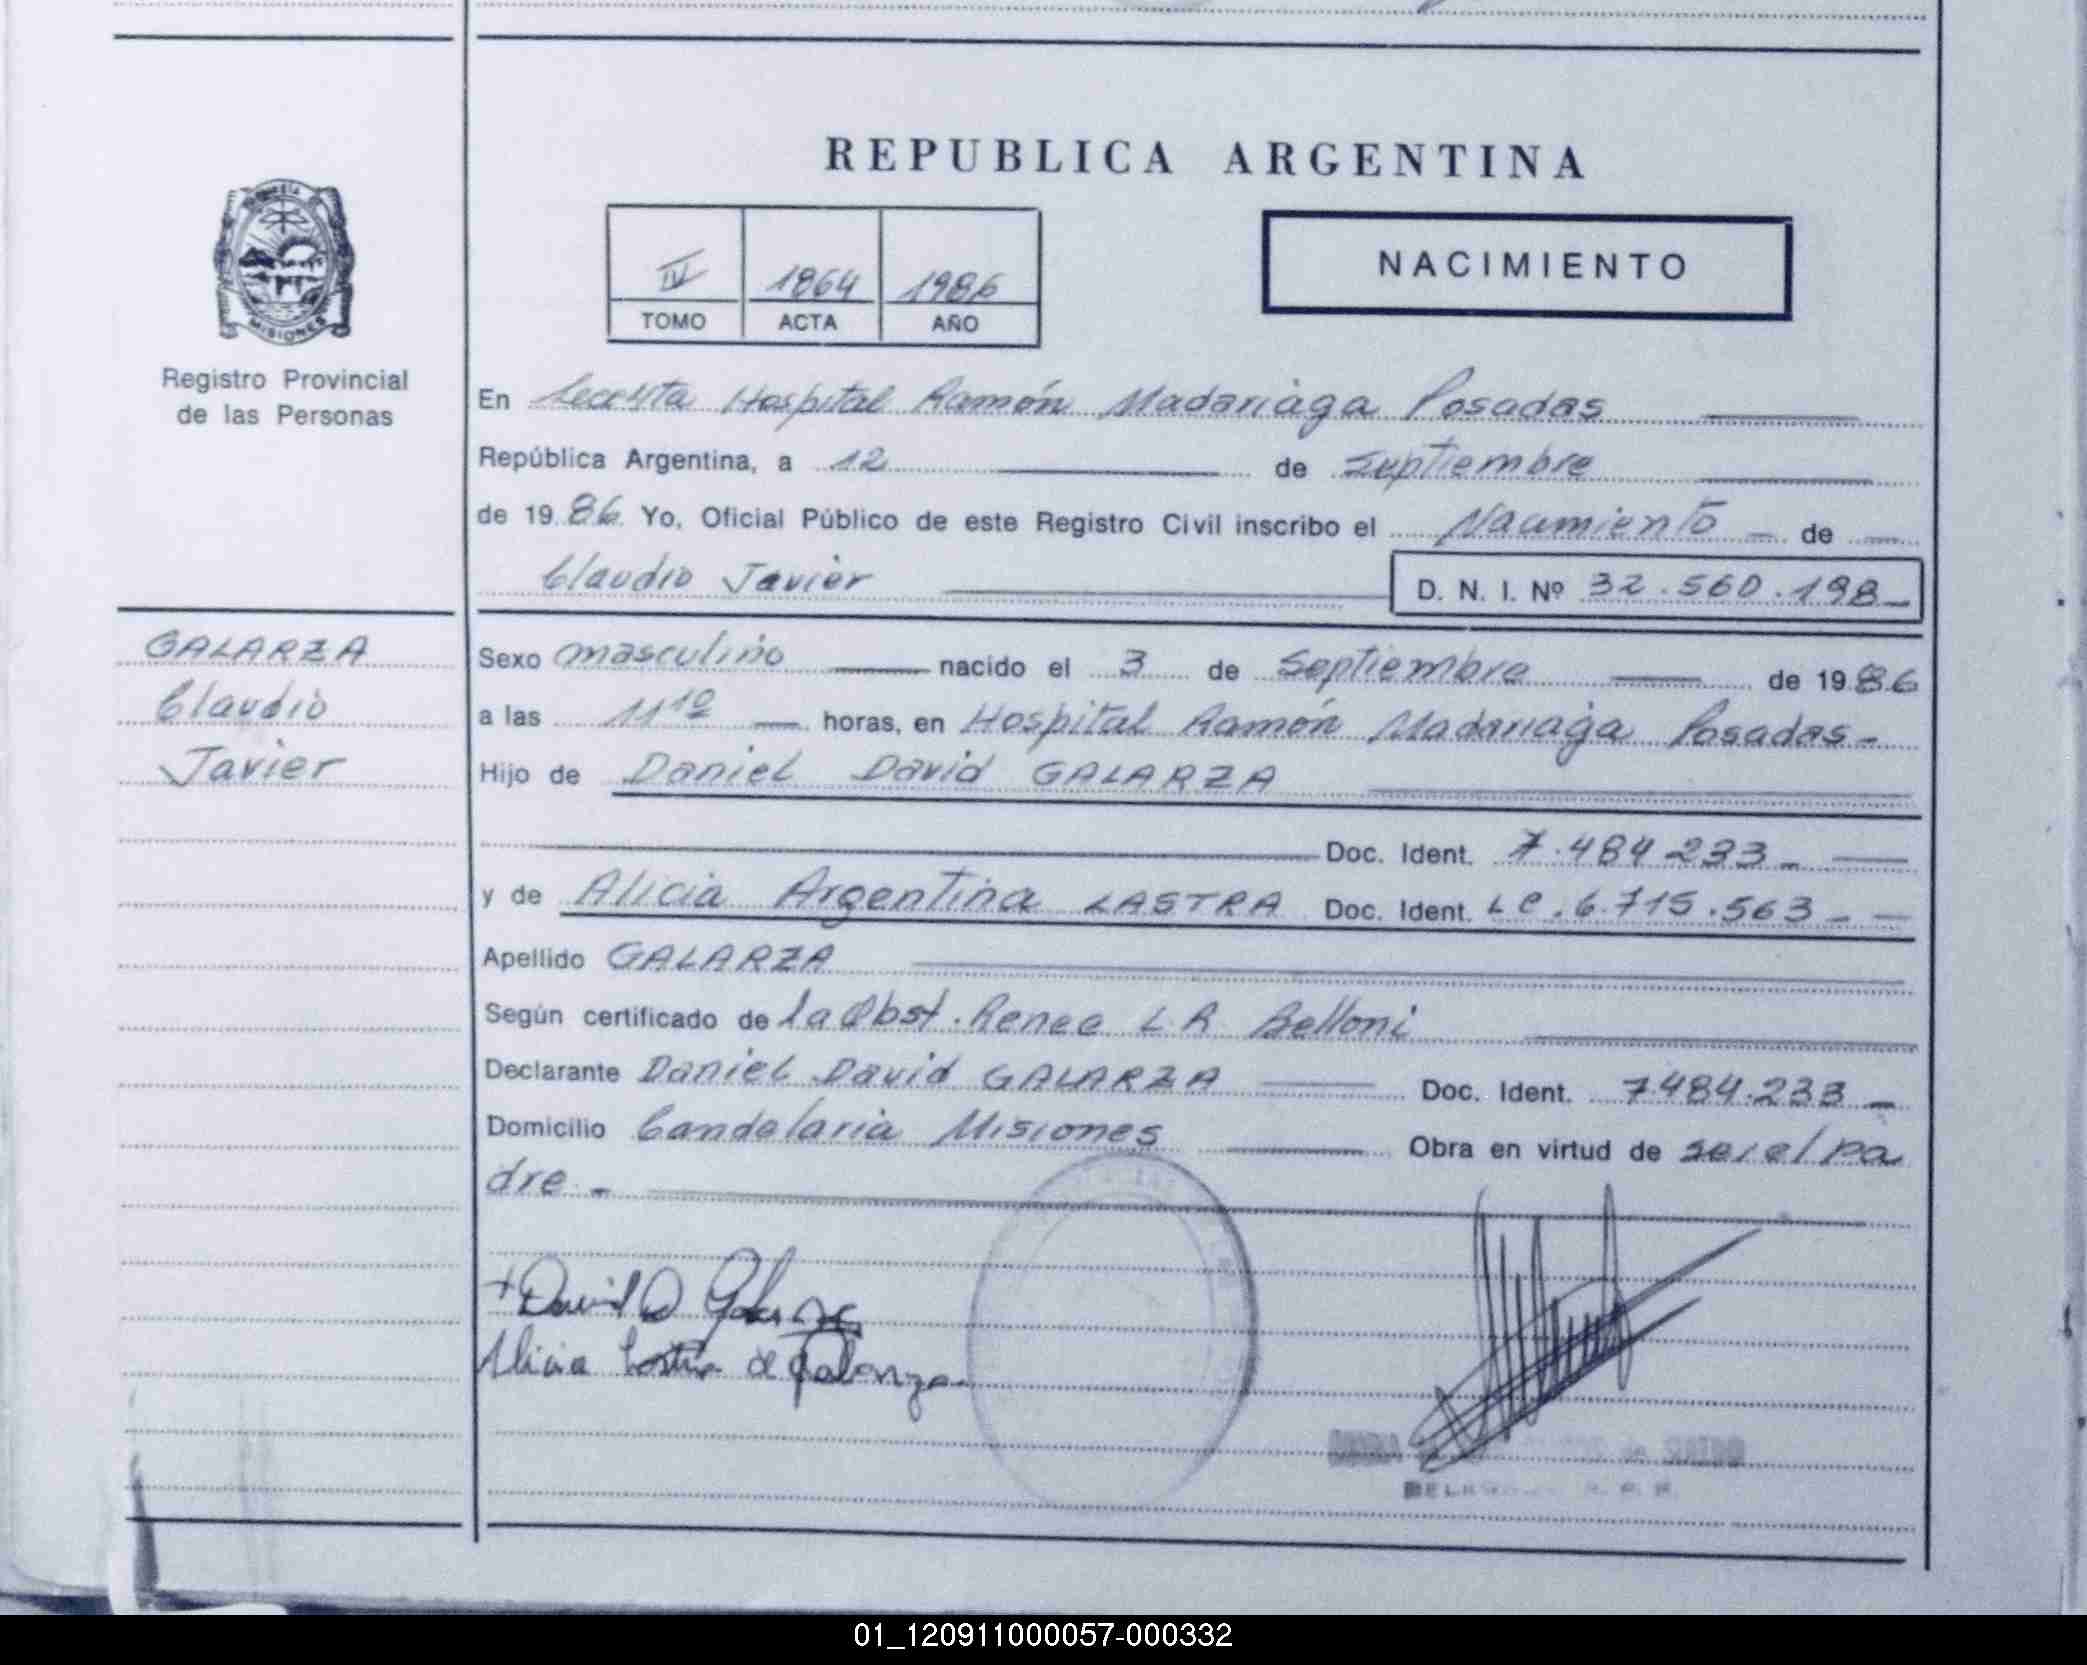 REPUBLICA ARGENTINA
NACIMIENTO
IV 1864 1986
TOMO ACTA AÑO
MISIONES
Registro Provincial
de las Personas
En Hospital Ramón Madariaga Posadas
República Argentina, a 12 de Septiembre
de 1986 Yo, Oficial Público de este Registro Civil inscribo el Nacimiento de
Claudio Javier D. N. I. Nº 32.560.198
GALARZA
Claudio
Javier
Sexo masculino nacido el 3 de Septiembre de 1986
a las 11 10 horas, en Hospital Ramón Madariaga Posadas
Hijo de Daniel David GALARZA
Doc. Ident. 7.484.233
y de Alicia Argentina LASTRA Doc. Ident. LC. 6.715.563
Apellido GALARZA
Según certificado de la Obst. Renee L R Belloni
Declarante Daniel David GALARZA Doc. Ident. 7.484.233
Domicilio Candelaria Misiones Obra en virtud de ser el pa
dre.
David D Galarza
Alicia Lastra de Galarza
01_120911000057-000332